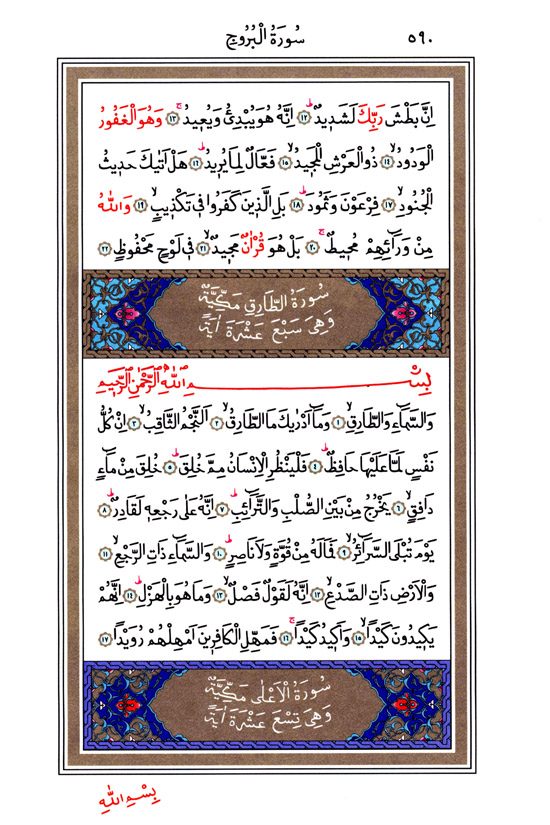 سُورَةُ الْبُرُوجِ ٥٩٠
اِنَّ بَطْشَ رَبِّكَ لَشَد۪يدٌۜ ﴿١٢﴾ اِنَّهُ هُوَ يُبْدِئُ وَيُع۪يدُۚ ﴿١٣﴾ وَهُوَ الْغَفُورُ
الْوَدُودُۙ ﴿١٤﴾ ذُو الْعَرْشِ الْمَج۪يدُۙ ﴿١٥﴾ فَعَّالٌ لِمَا يُر۪يدُۜ ﴿١٦﴾ هَلْ اَتٰيكَ حَد۪يثُ
الْجُنُودِۙ ﴿١٧﴾ فِرْعَوْنَ وَثَمُودَۜ ﴿١٨﴾ بَلِ الَّذ۪ينَ كَفَرُوا ف۪ي تَكْذ۪يبٍۙ ﴿١٩﴾ وَاللّٰهُ
مِنْ وَرَٓائِهِمْ مُح۪يطٌۚ ﴿٢٠﴾ بَلْ هُوَ قُرْاٰنٌ مَج۪يدٌۙ ﴿٢١﴾ ف۪ي لَوْحٍ مَحْفُوظٍ ﴿٢٢﴾
سُورَةُ الطَّارِقِ مَكِّيَّةٌ
وَهِيَ سَبْعَ عَشْرَةَ اٰيَةً
بِسْمِ اللّٰهِ الرَّحْمٰنِ الرَّح۪يمِ
وَالسَّمَٓاءِ وَالطَّارِقِۙ ﴿١﴾ وَمَٓا اَدْرٰيكَ مَا الطَّارِقُۙ ﴿٢﴾ اَلنَّجْمُ الثَّاقِبُۙ ﴿٣﴾ اِنْ كُلُّ
نَفْسٍ لَمَّا عَلَيْهَا حَافِظٌۜ ﴿٤﴾ فَلْيَنْظُرِ الْاِنْسَانُ مِمَّ خُلِقَۜ ﴿٥﴾ خُلِقَ مِنْ مَٓاءٍ
دَافِقٍۙ ﴿٦﴾ يَخْرُجُ مِنْ بَيْنِ الصُّلْبِ وَالتَّرَٓائِبِۜ ﴿٧﴾ اِنَّهُ عَلٰى رَجْعِه۪ لَقَادِرٌۜ ﴿٨﴾
يَوْمَ تُبْلَى السَّرَٓائِرُۙ ﴿٩﴾ فَمَا لَهُ مِنْ قُوَّةٍ وَلَا نَاصِرٍۜ ﴿١٠﴾ وَالسَّمَٓاءِ ذَاتِ الرَّجْعِۙ ﴿١١﴾
وَالْاَرْضِ ذَاتِ الصَّدْعِۙ ﴿١٢﴾ اِنَّهُ لَقَوْلٌ فَصْلٌۙ ﴿١٣﴾ وَمَا هُوَ بِالْهَزْلِۜ ﴿١٤﴾ اِنَّهُمْ
يَك۪يدُونَ كَيْدًاۙ ﴿١٥﴾ وَاَك۪يدُ كَيْدًاۚ ﴿١٦﴾ فَمَهِّلِ الْكَافِر۪ينَ اَمْهِلْهُمْ رُوَيْدًا ﴿١٧﴾
سُورَةُ الْاَعْلٰى مَكِّيَّةٌ
وَهِيَ تِسْعَ عَشْرَةَ اٰيَةً
بِسْمِ اللّٰهِ